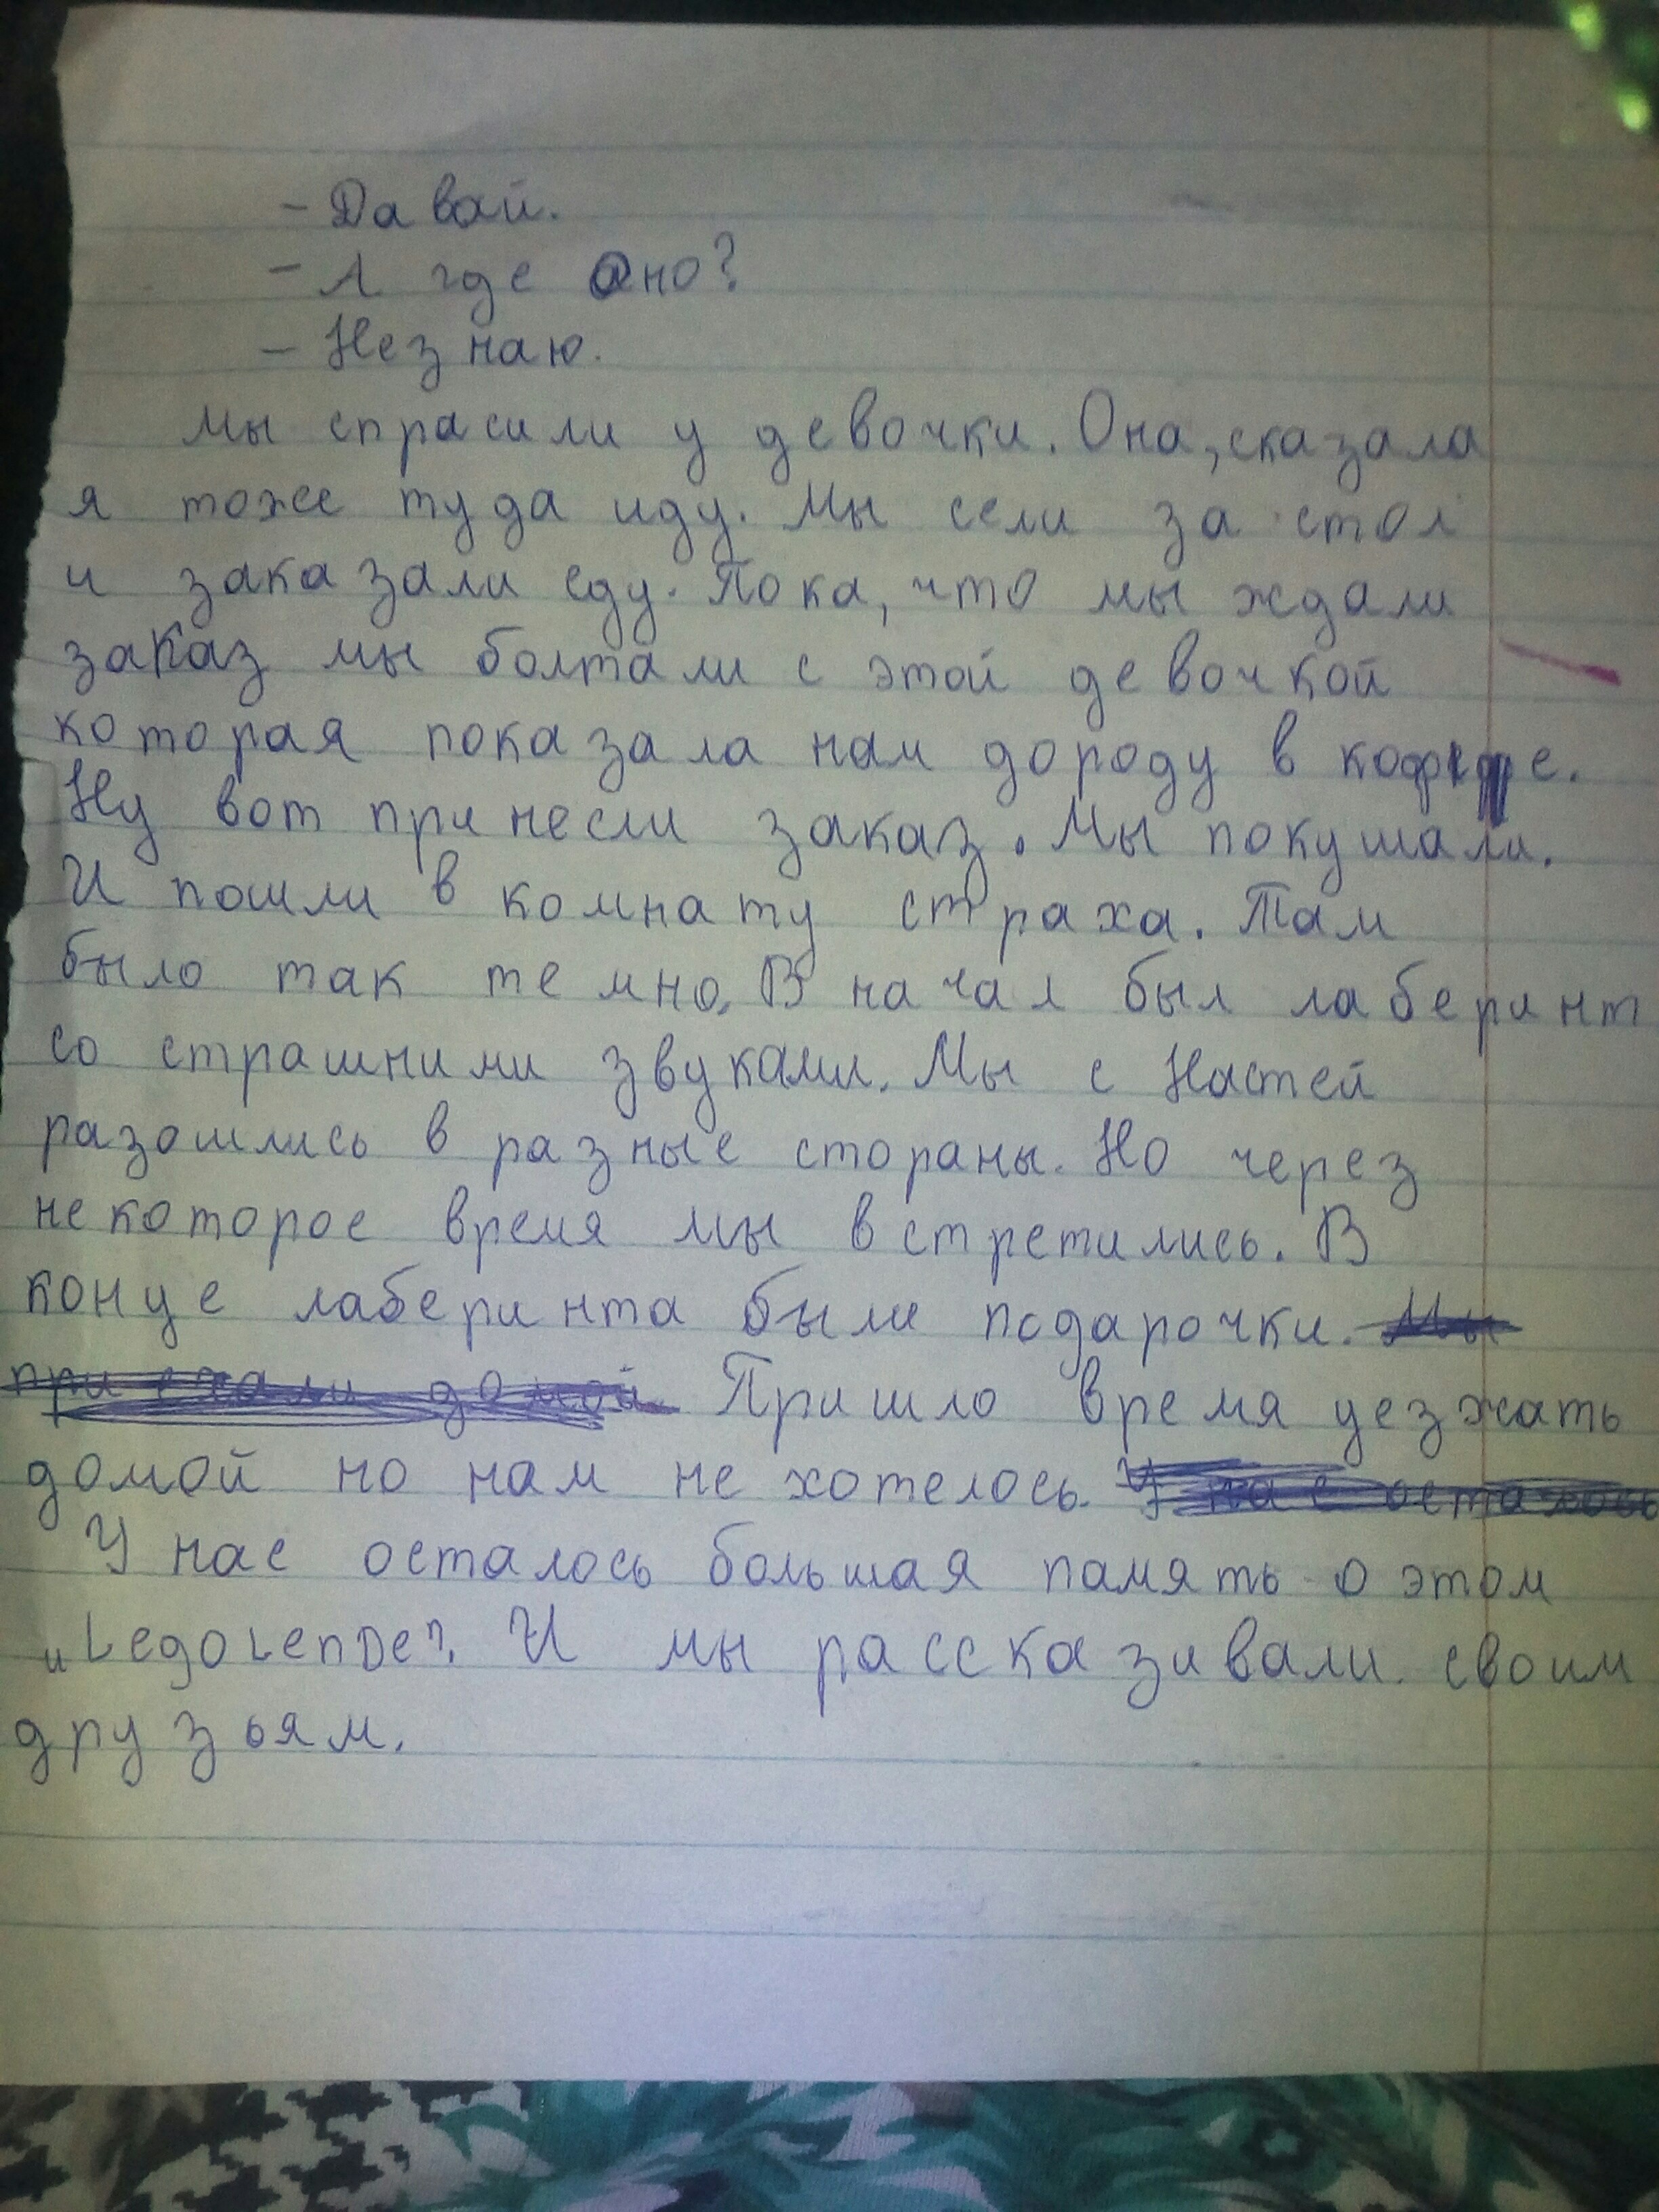 - Давай.
- А где оно?
- Незнаю.
Мы спрасили у девочки. Она, сказала
я тоже туда иду. Мы сели за стол
и заказали еду. Пока, что мы ждали
заказ мы болтали с этой девочкой
которая показала нам дороду в кофе.
Ну вот принесли заказ. Мы покушали.
И пошли в комнату страха. Там
было так темно. В начал был лаберинт
со страшними звуками. Мы с Настей
разошлись в разные стораны. Но через
некоторое время мы встретились. В
конце лаберинта были подарочки. Мы
приехали домой Пришло время уезжать
домой но нам не хотелось. У нас осталось
У нас осталось большая память о этом
„LegoLenDe". И мы рассказивали своим
друзьям.